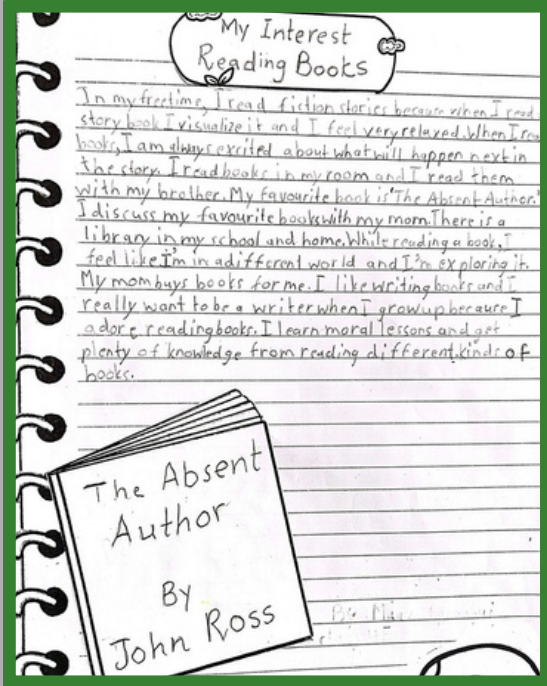 My Interest
Reading Books
In my freetime, I read fiction stories because when I read
story book I visualize it and I feel very relaxed. When I read
books, I am always excited about what will happen next in
the story. I read books in my room and I read them
with my brother. My favourite book is "The Absent Author."
I discuss my favourite books with my mom. There is a
library in my school and home. While reading a book, I
feel like I'm in a different world and I'm exploring it.
My mom buys books for me. I like writing books and I
really want to be a writer when I grow up because I
adore reading books. I learn moral lessons and get
plenty of knowledge from reading different kinds of
books.
The Absent
Author
By
John Ross
By: